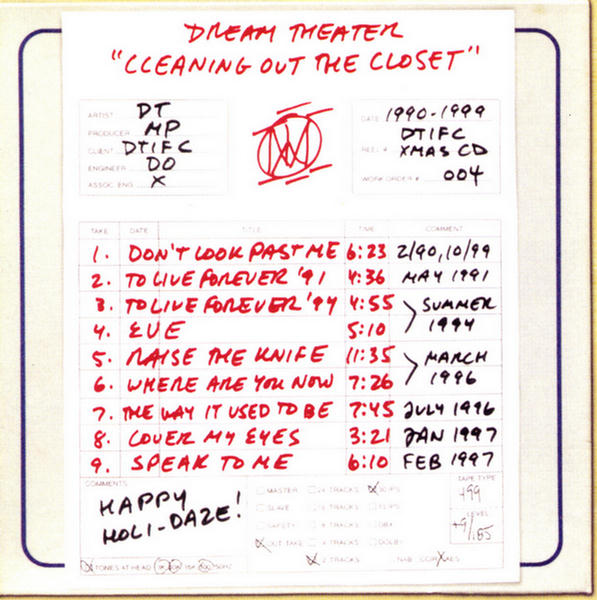 DREAM THEATER
"CLEANING OUT THE CLOSET"
ARTIST DT
PRODUCER MP
CLIENT DTIFC
ENGINEER DO
ASSOC. ENG. X
DATE 1990-1999
DTIFC
REEL # XMAS CD
WORK ORDER # 004
TAKE DATE TITLE TIME COMMENT
1. DON'T LOOK PAST ME 6:23 2/90, 10/99
2. TO LIVE FOREVER '91 4:36 MAY 1991
3. TO LIVE FOREVER '94 4:55 SUMMER
4. EVE 5:10 1994
5. RAISE THE KNIFE 11:35 MARCH
6. WHERE ARE YOU NOW 7:26 1996
7. THE WAY IT USED TO BE 7:45 JULY 1996
8. COVER MY EYES 3:21 JAN 1997
9. SPEAK TO ME 6:10 FEB 1997
COMMENTS
HAPPY
HOLI-DAZE!
MASTER 24 TRACKS 30 IPS
SLAVE 16 TRACKS 15 IPS
SAFETY TRACKS DBX
OUT TAKE 4 TRACKS DOLBY
2 TRACKS NAB
TAPE TYPE
499
LEVEL
+9/185
TONES AT HEAD